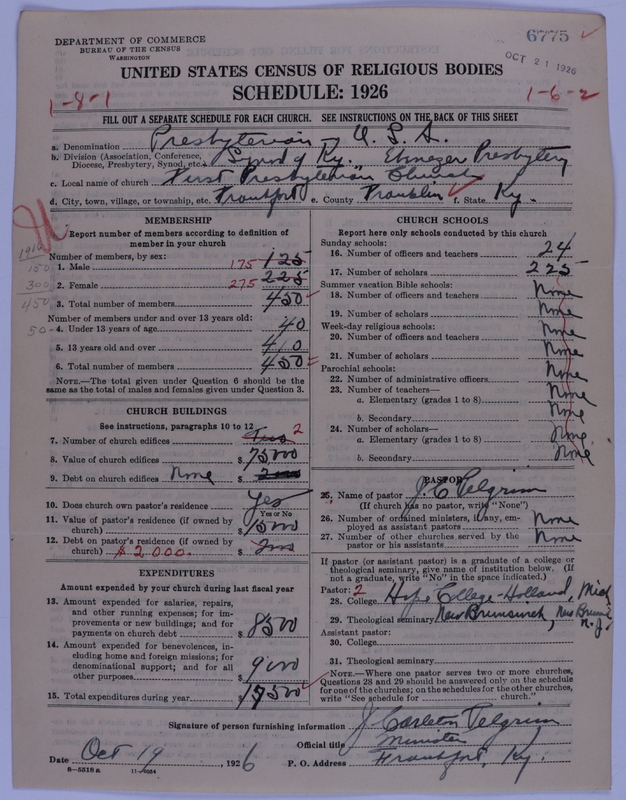 DEPARTMENT OF COMMERCE
BUREAU OF THE CENSUS
WASHINGTON
6775
OCT 21 1926
UNITED STATES CENSUS OF RELIGIOUS BODIES
SCHEDULE: 1926
1-8-1
1-6-2
FILL OUT A SEPARATE SCHEDULE FOR EACH CHURCH. SEE INSTRUCTIONS ON THE BACK OF THIS SHEET
a. Denomination Presbyterian U.S.A.
b. Division (Association, Conference, Diocese, Presbytery, Synod, etc.) Synod of Ky., Ebenezer Presbytery
c. Local name of church First Presbyterian Church
d. City, town, village, or township, etc. Frankfort e. County Franklin f. State Ky.
MEMBERSHIP
Report number of members according to definition of
member in your church
Number of members, by sex:
1. Male 175 125
2. Female 275 225
3. Total number of members 450
Number of members under and over 13 years old:
4. Under 13 years of age 40
5. 13 years old and over 410
6. Total number of members 450
NOTE.—The total given under Question 6 should be the
same as the total of males and females given under Question 3.
1916
150
300
450
50
CHURCH BUILDINGS
See instructions, paragraphs 10 to 12
7. Number of church edifices Two 2
8. Value of church edifices $ 75,000
9. Debt on church edifices None $
10. Does church own pastor's residence Yes
Yes or No
11. Value of pastor's residence (if owned by
church) $ 15000
12. Debt on pastor's residence (if owned by
church) $2000. $
EXPENDITURES
Amount expended by your church during last fiscal year
13. Amount expended for salaries, repairs,
and other running expenses; for im-
provements or new buildings; and for
payments on church debt $ 8500
14. Amount expended for benevolences, in-
cluding home and foreign missions; for
denominational support; and for all
other purposes $ 9000
15. Total expenditures during year $ 17500
CHURCH SCHOOLS
Report here only schools conducted by this church
Sunday schools:
16. Number of officers and teachers 24
17. Number of scholars 225
Summer vacation Bible schools:
18. Number of officers and teachers None
19. Number of scholars None
Week-day religious schools:
20. Number of officers and teachers None
21. Number of scholars None
Parochial schools:
22. Number of administrative officers None
23. Number of teachers—
a. Elementary (grades 1 to 8) None
b. Secondary None
24. Number of scholars—
a. Elementary (grades 1 to 8) None
b. Secondary None
PASTOR
25. Name of pastor J. C. Pelgrim
(If church has no pastor, write "None")
26. Number of ordained ministers, if any, em-
ployed as assistant pastors None
27. Number of other churches served by the
pastor or his assistants None
If pastor (or assistant pastor) is a graduate of a college or
theological seminary, give name of institution below. (If
not a graduate, write "No" in the space indicated.)
Pastor: 2
28. College Hope College-Holland, Mich
29. Theological seminary New Brunswick, New Bruns. N.J.
Assistant pastor:
30. College
31. Theological seminary
NOTE.—Where one pastor serves two or more churches,
Questions 28 and 29 should be answered only on the schedule
for one of the churches; on the schedules for the other churches,
write "See schedule for church."
Signature of person furnishing information J. Carleton Pelgrim
Official title Minister
Date Oct 19, 1926 P. O. Address Frankfort, Ky.
8—5518a 11—9054